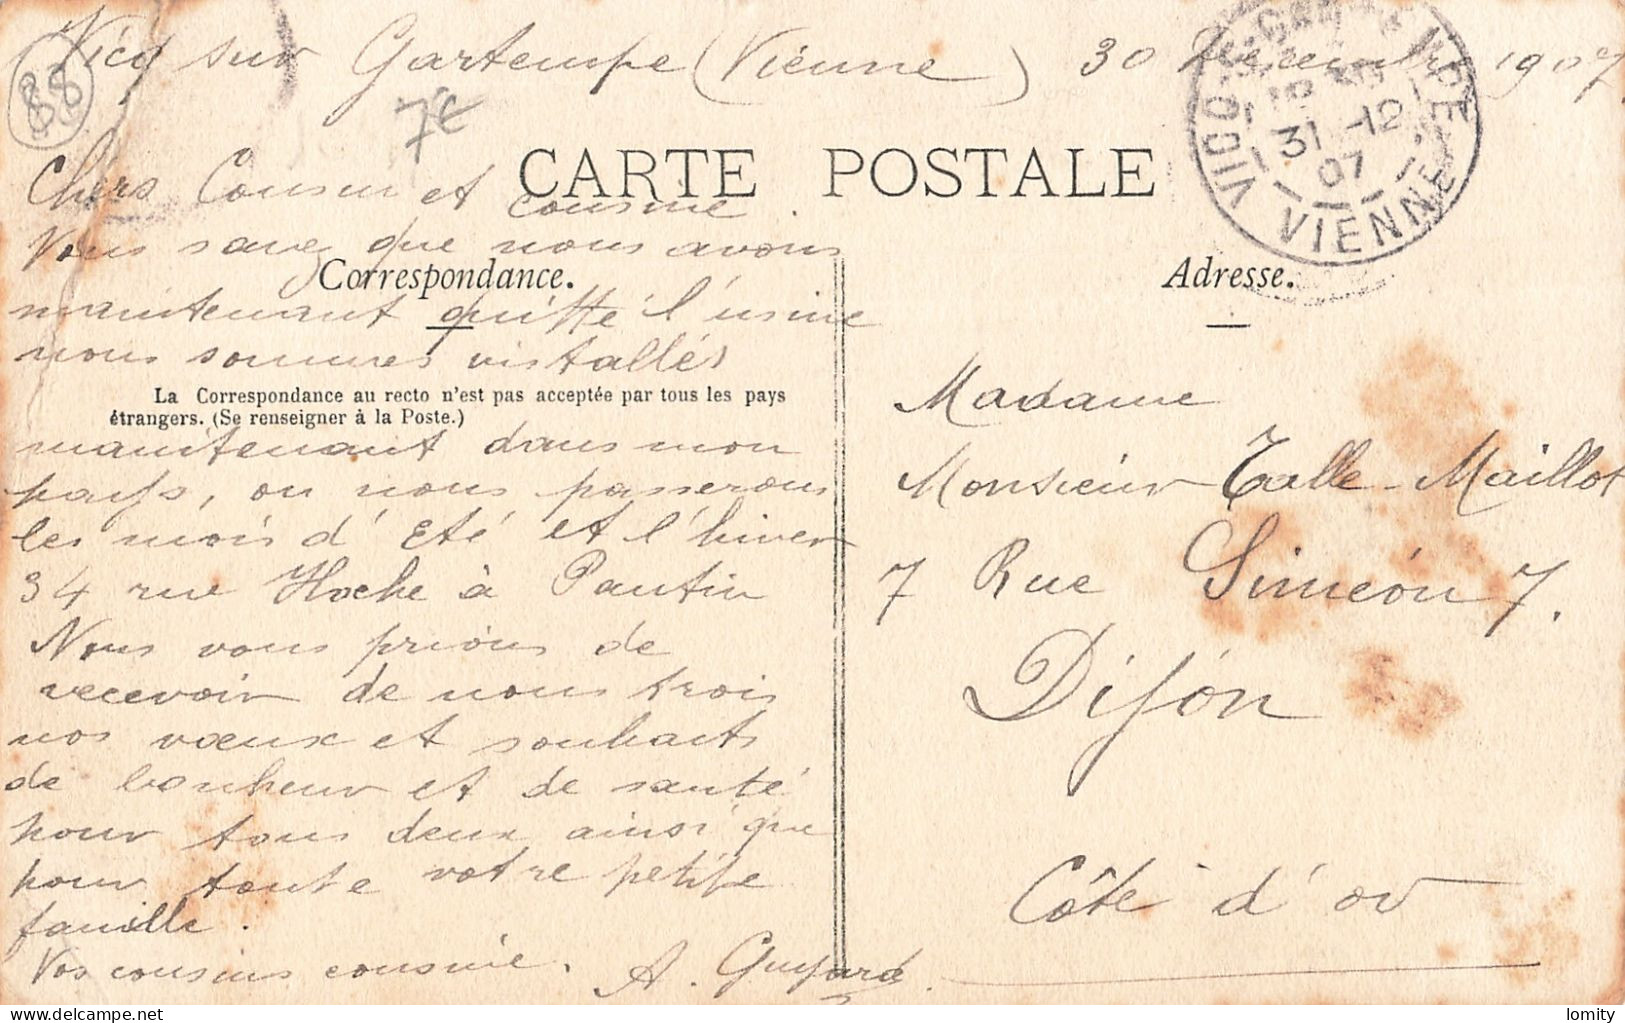 Vicq sur Gartempe (Vienne) 30 Décembre 1907
88
7€
VICQ-S-GARTEMPE
31 -12
07
VIENNE
CARTE POSTALE
Chers Cousin et cousine.
Vous savez que nous avons
Correspondance.
maintenant quitté l'usine
nous sommes installés
La Correspondance au recto n'est pas acceptée par tous les pays
étrangers. (Se renseigner à la Poste.)
maintenant dans mon
pays, ou nous passerons
les mois d'Eté et l'hiver
34 rue Hoche à Pantin
Nous vous prions de
recevoir de nous trois
nos vœux et souhaits
de bonheur et de santé
pour tous deux ainsi que
pour toute votre petite
famille.
Vos cousins cousine. A. Guyard.
Adresse.
Madame
Monsieur Talle-Maillot
7 Rue Siméon 7.
Dijon
Côte d'or
delcampe.net
lomity